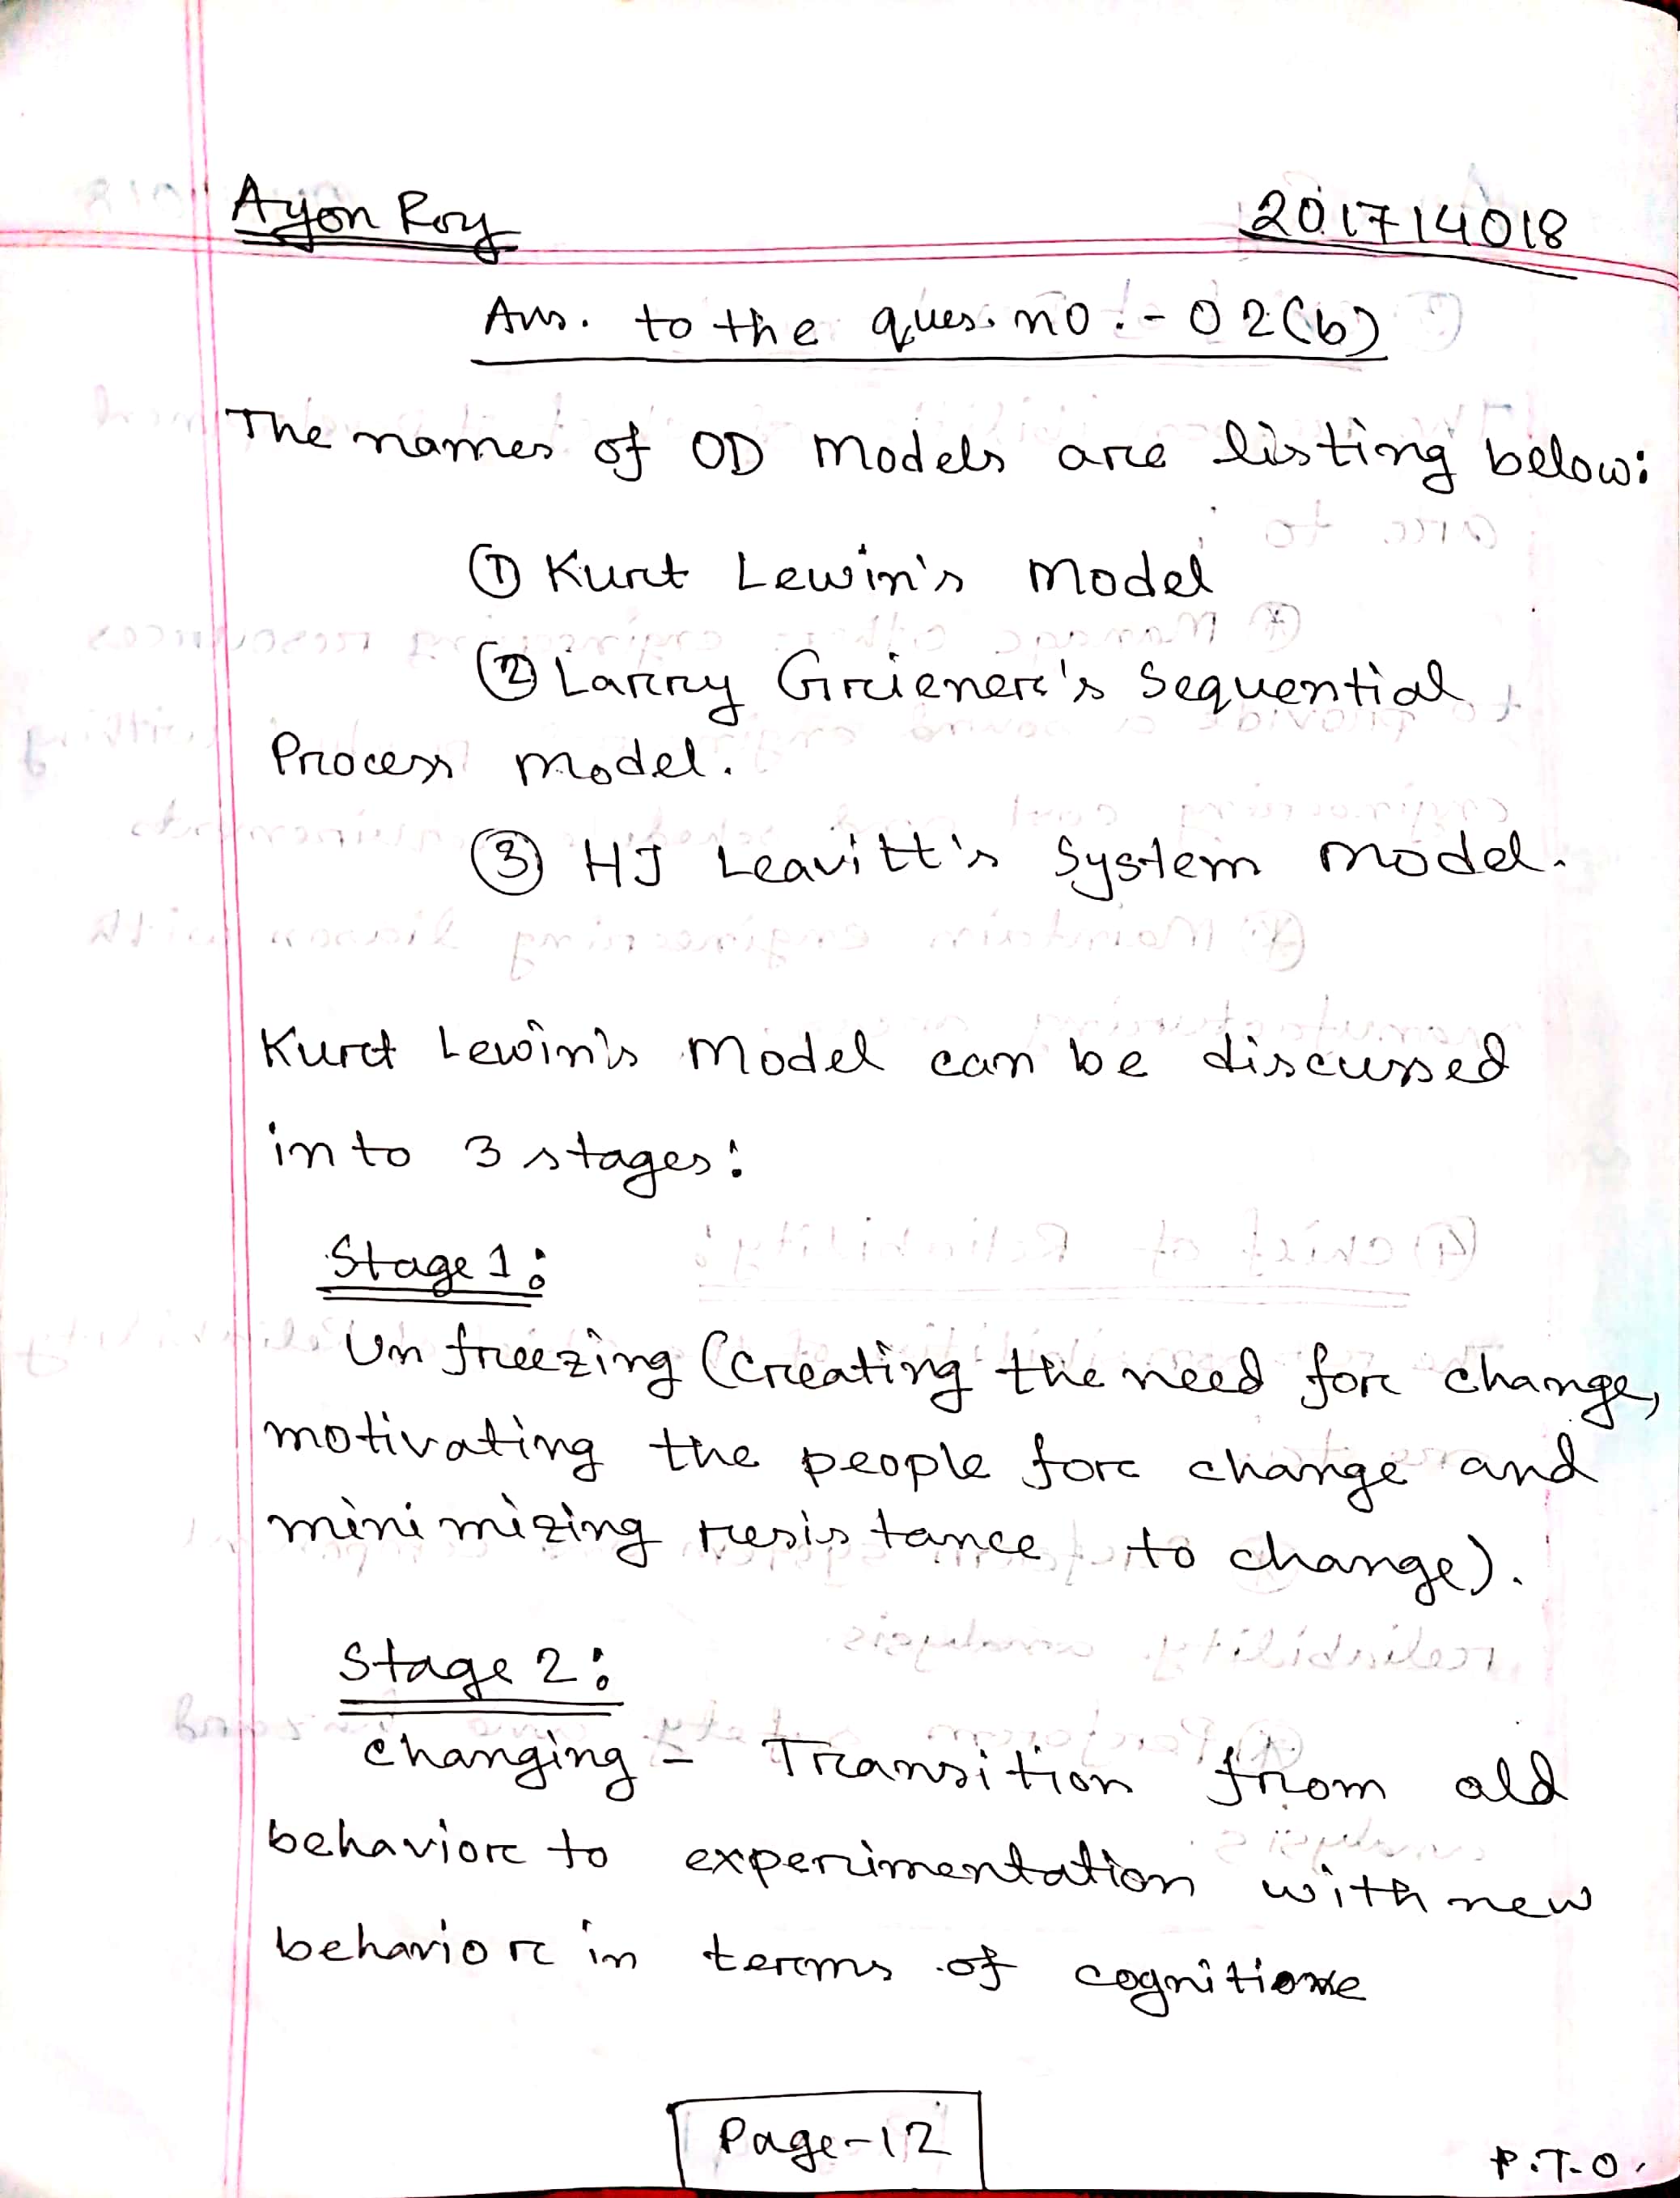 Ayon Roy 201714018
Ans. to the ques. no. - 02(b)
The names of OD models are listing below:
① Kurt Lewin's model
② Larry Griener's Sequential
Process model.
③ HJ Leavitt's System model.
Kurt Lewin's model can be discussed
into 3 stages:
Stage 1:
Unfreezing (Creating the need for change,
motivating the people for change and
minimizing resistance to change).
Stage 2:
Changing - Transition from old
behavior to experimentation with new
behavior in terms of
Page-12
P.T.O.